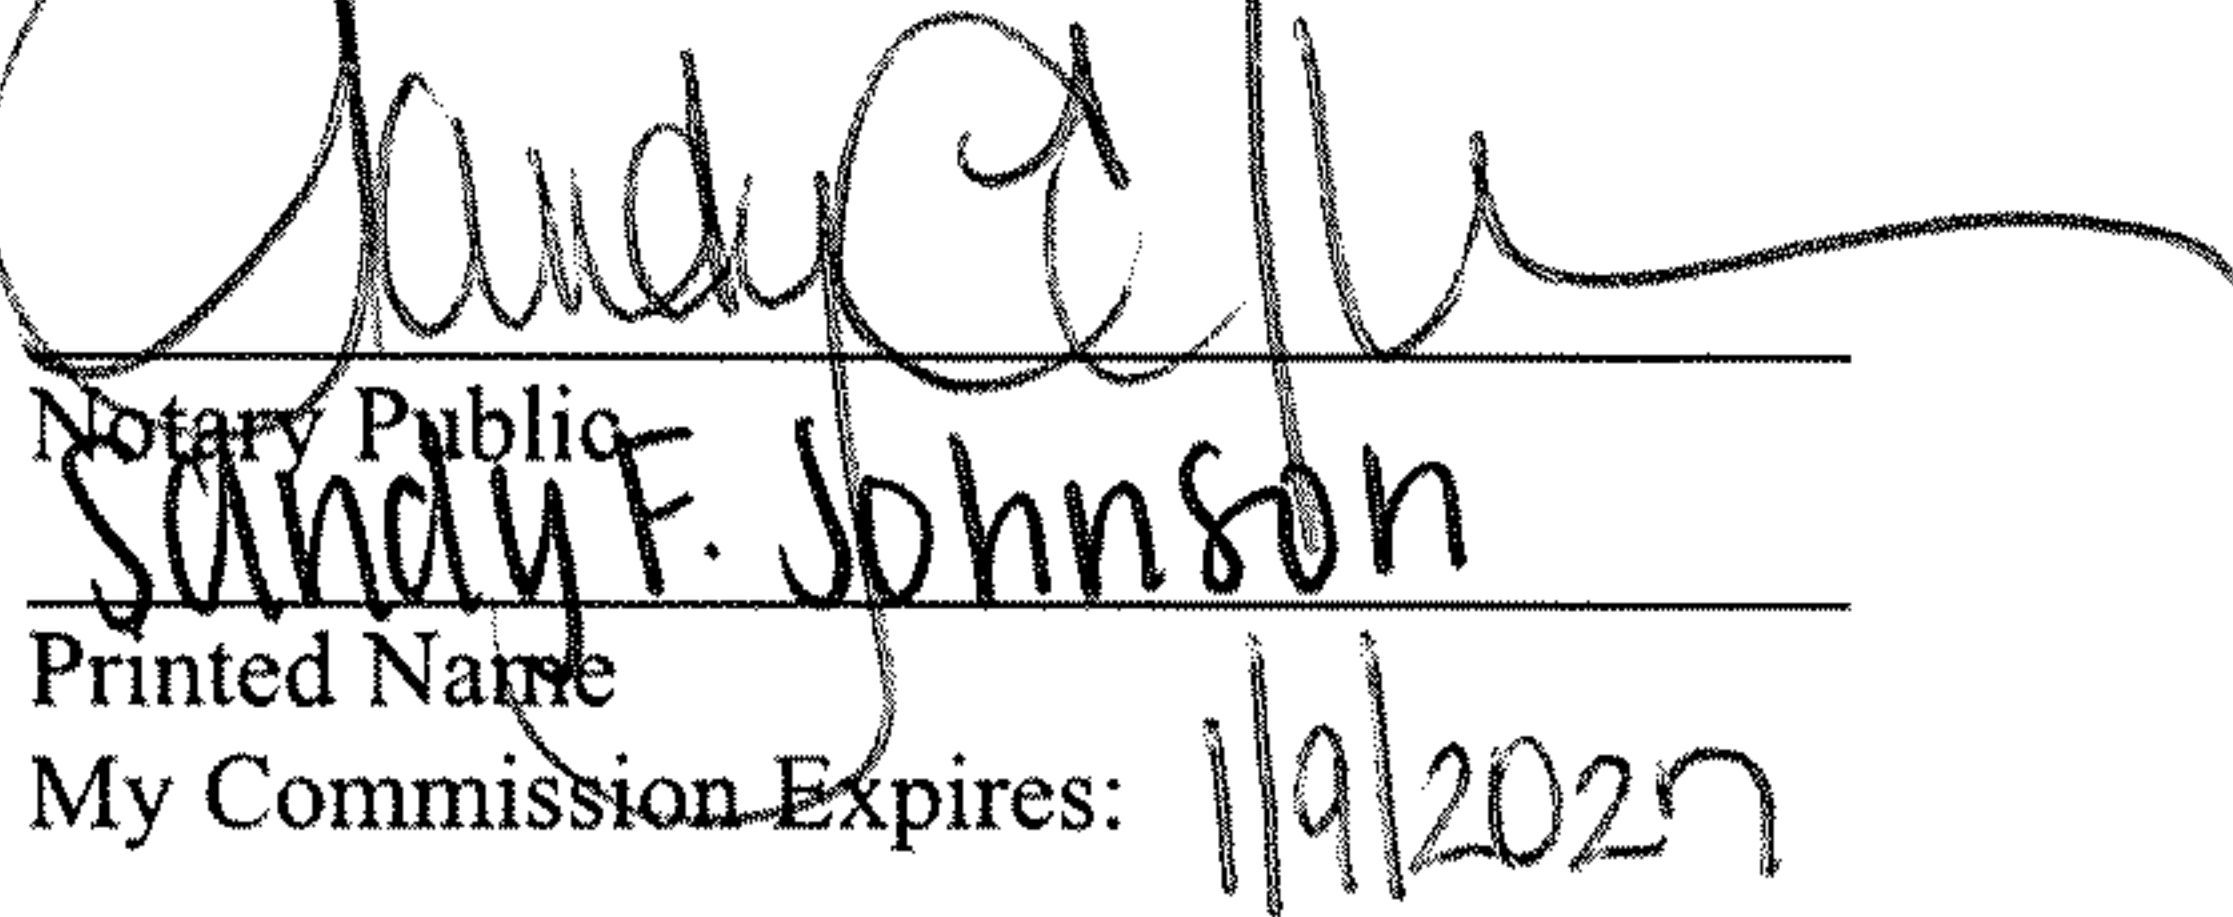 Sandy
Notary Public
Sandy F. Johnson
Printed Name
My Commission Expires: 1/9/2027